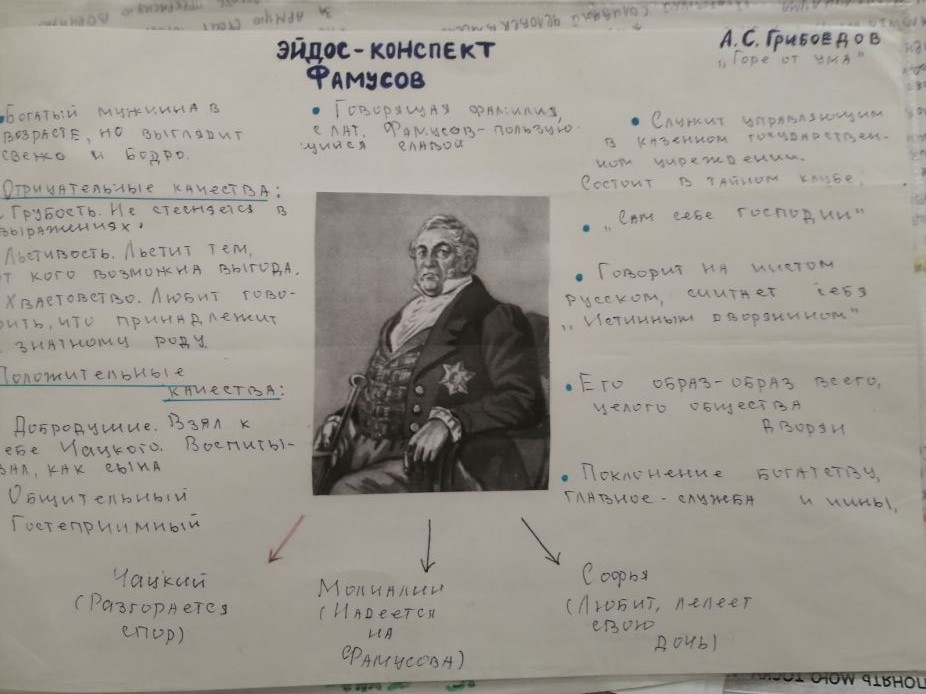 ЭЙДОС-КОНСПЕКТ
ФАМУСОВ
А.С. ГРИБОЕДОВ
„ГОРЕ ОТ УМА"
• БОГАТЫЙ МУЖЧИНА В
ВОЗРАСТЕ, НО ВЫГЛЯДИТ
СВЕЖО И БОДРО.
ОТРИЦАТЕЛЬНЫЕ КАЧЕСТВА:
ГРУБОСТЬ. НЕ СТЕСНЯЕТСЯ В
ВЫРАЖЕНИЯХ.
ЛЬСТИВОСТЬ. ЛЬСТИТ ТЕМ,
ОТ КОГО ВОЗМОЖНА ВЫГОДА.
ХВАСТОВСТВО. ЛЮБИТ ГОВО-
РИТЬ, ЧТО ПРИНАДЛЕЖИТ
ЗНАТНОМУ РОДУ.
ПОЛОЖИТЕЛЬНЫЕ
КАЧЕСТВА:
ДОБРОДУШИЕ. ВЗЯЛ К
СЕБЕ ЧАЦКОГО. ВОСПИТЫ-
ВАЛ, КАК СЫНА
ОБЩИТЕЛЬНЫЙ
ГОСТЕПРИИМНЫЙ
• ГОВОРЯЩАЯ ФАМИЛИЯ,
С ЛАТ. ФАМУСОВ-ПОЛЬЗУЮ-
ЩИЙСЯ СЛАВОЙ
• СЛУЖИТ УПРАВЛЯЮЩИМ
В КАЗЕННОМ ГОСУДАРСТВЕН-
НОМ УЧРЕЖДЕНИИ.
СОСТОИТ В ТАЙНОМ КЛУБЕ.
• „САМ СЕБЕ ГОСПОДИН"
• ГОВОРИТ НА ЧИСТОМ
РУССКОМ, СЧИТАЕТ СЕБЯ
„ИСТИННЫМ ДВОРЯНИНОМ"
• ЕГО ОБРАЗ-ОБРАЗ ВСЕГО,
ЦЕЛОГО ОБЩЕСТВА
ДВОРЯН
• ПОКЛОНЕНИЕ БОГАТСТВУ,
ГЛАВНОЕ-СЛУЖБА И ЧИНЫ.
ЧАЦКИЙ
(РАЗГОРАЕТСЯ
СПОР)
МОЛЧАЛИН
(НАДЕЕТСЯ
НА
ФАМУСОВА)
СОФЬЯ
(ЛЮБИТ, ЛЕЛЕЕТ
СВОЮ
ДОЧЬ)